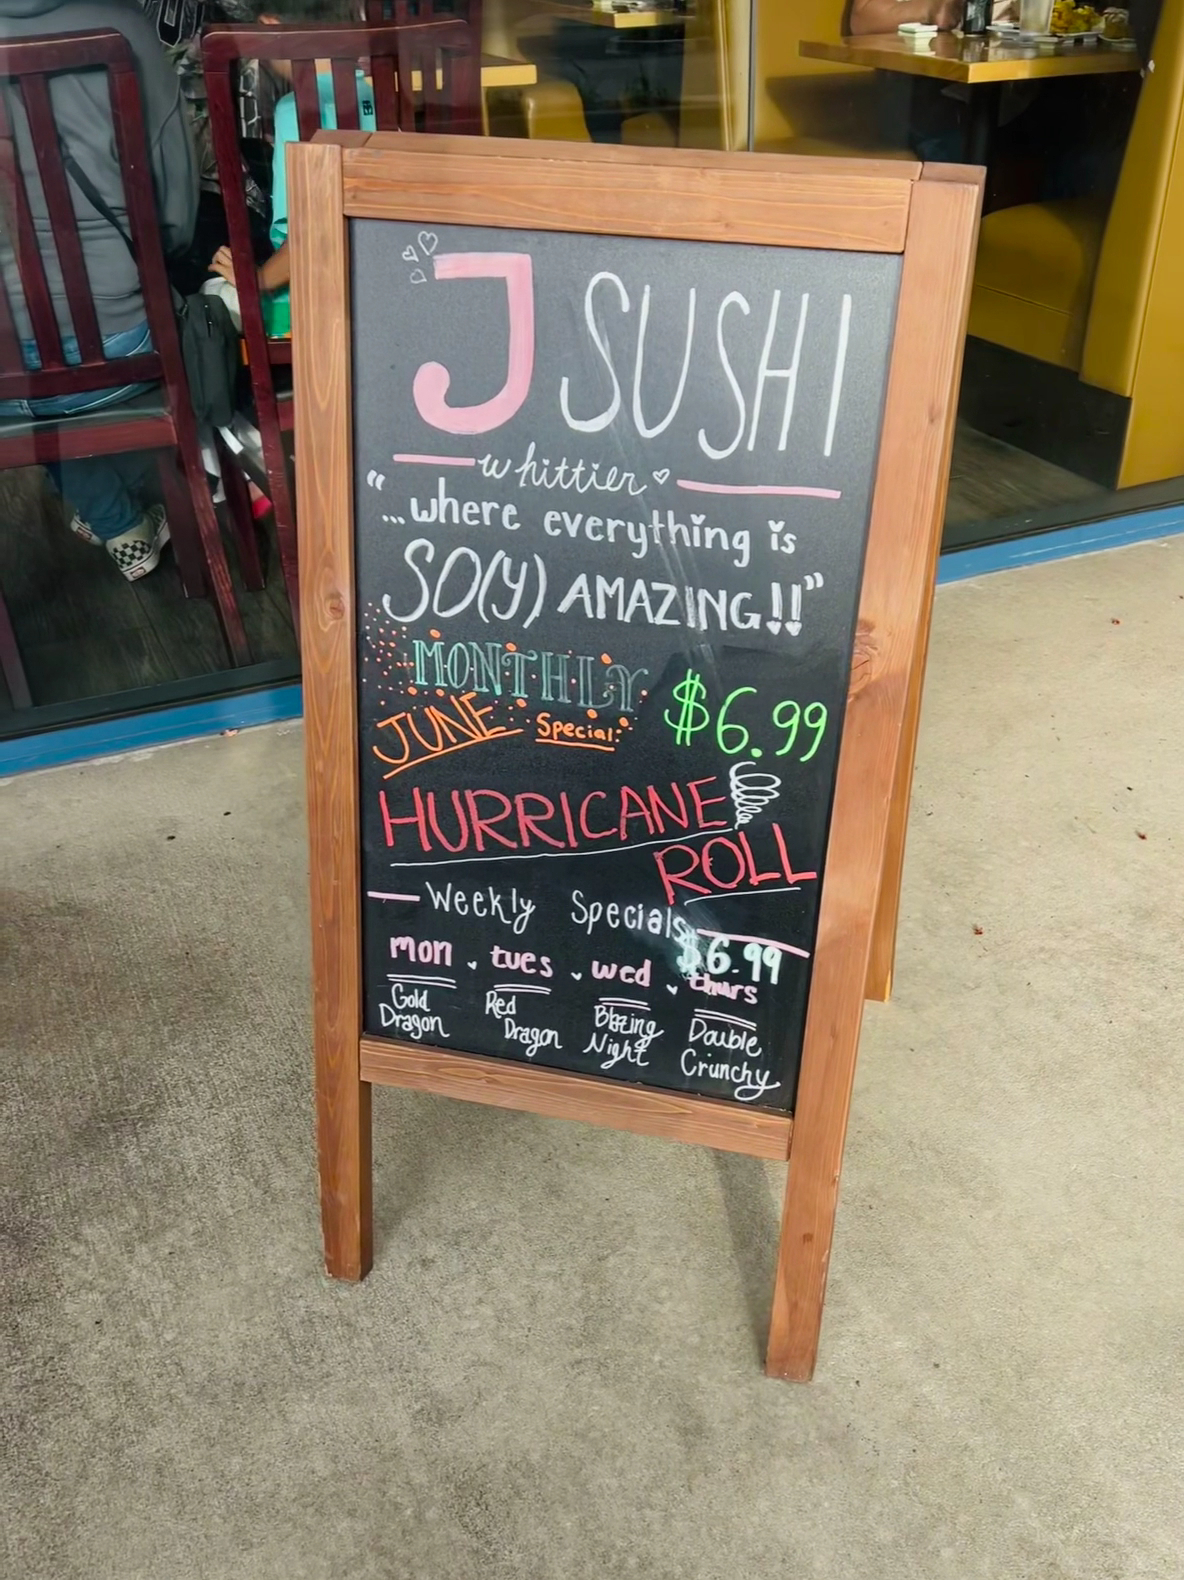 J SUSHI
whittier
"...where everything is
SO(Y) AMAZING!!"
MONTHLY
JUNE Special:
$6.99
HURRICANE
ROLL
Weekly Specials
$6.99
mon, tues, wed, thurs
Gold Dragon
Red Dragon
Blazing Night
Double Crunchy